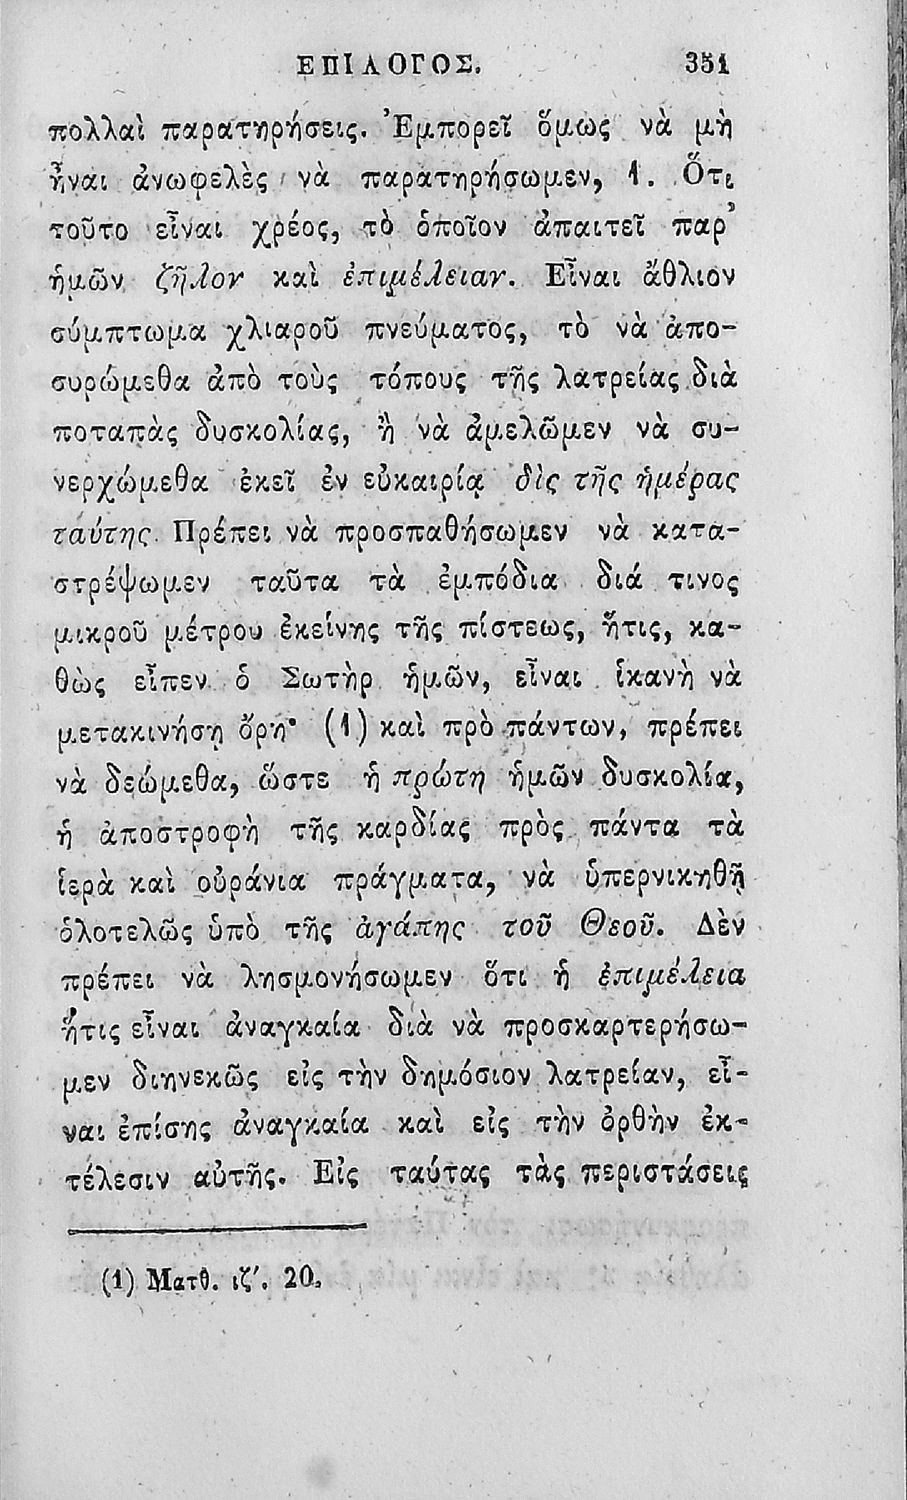 ΕΠΙΛΟΓΟΣ. 351
πολλαὶ παρατηρήσεις. Ἐμπορεῖ ὅμως νὰ μὴ
ἦναι ἀνωφελὲς νὰ παρατηρήσωμεν, 1. Ὅτι
τοῦτο εἶναι χρέος, τὸ ὁποῖον ἀπαιτεῖ παρ᾽
ἡμῶν ζῆλον καὶ ἐπιμέλειαν. Εἶναι ἄθλιον
σύμπτωμα χλιαροῦ πνεύματος, τὸ νὰ ἀπο-
συρώμεθα ἀπὸ τοὺς τόπους τῆς λατρείας διὰ
ποταπὰς δυσκολίας, ἢ νὰ ἀμελῶμεν νὰ συ-
νερχώμεθα ἐκεῖ ἐν εὐκαιρίᾳ δὶς τῆς ἡμέρας
ταύτης. Πρέπει νὰ προσπαθήσωμεν νὰ κατα-
στρέψωμεν ταῦτα τὰ ἐμπόδια διά τινος
μικροῦ μέτρου ἐκείνης τῆς πίστεως, ἥτις, κα-
θὼς εἶπεν ὁ Σωτὴρ ἡμῶν, εἶναι ἱκανὴ νὰ
μετακινήσῃ ὄρη· (1) καὶ πρὸ πάντων, πρέπει
νὰ δεώμεθα, ὥστε ἡ πρώτη ἡμῶν δυσκολία,
ἡ ἀποστροφὴ τῆς καρδίας πρὸς πάντα τὰ
ἱερὰ καὶ οὐράνια πράγματα, νὰ ὑπερνικηθῇ
ὁλοτελῶς ὑπὸ τῆς ἀγάπης τοῦ Θεοῦ. Δὲν
πρέπει νὰ λησμονήσωμεν ὅτι ἡ ἐπιμέλεια
ἥτις εἶναι ἀναγκαία διὰ νὰ προσκαρτερήσω-
μεν διηνεκῶς εἰς τὴν δημόσιον λατρείαν, εἶ-
ναι ἐπίσης ἀναγκαία καὶ εἰς τὴν ὀρθὴν ἐκ-
τέλεσιν αὐτῆς. Εἰς ταύτας τὰς περιστάσεις
(1) Ματθ. ιζ΄. 20.